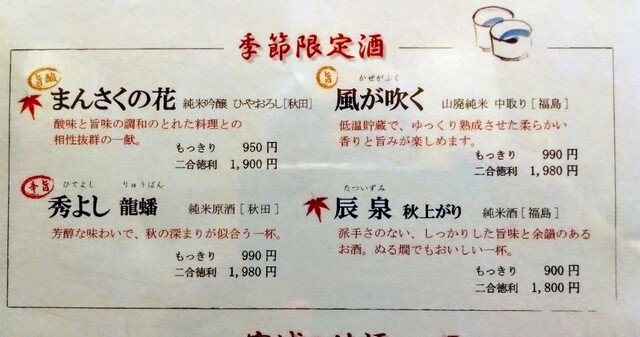 季節限定酒
旨酸
まんさくの花 純米吟醸 ひやおろし[秋田]
酸味と旨味の調和のとれた料理との
相性抜群の一献。
もっきり 950 円
二合徳利 1,900 円
旨
かぜがふく
風が吹く 山廃純米 中取り[福島]
低温貯蔵で、ゆっくり熟成させた柔らかい
香りと旨みが楽しめます。
もっきり 990 円
二合徳利 1,980 円
辛旨
ひでよし りゅうばん
秀よし 龍蟠 純米原酒[秋田]
芳醇な味わいで、秋の深まりが似合う一杯。
もっきり 990 円
二合徳利 1,980 円
たついずみ
辰泉 秋上がり 純米酒[福島]
派手さのない、しっかりした旨味と余韻のある
お酒。ぬる燗でもおいしい一杯。
もっきり 900 円
二合徳利 1,800 円